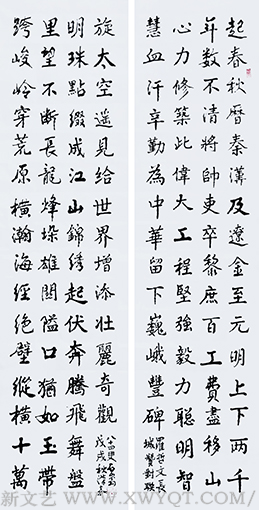 起春秋曆秦漢及遼金至元明上下兩千
年數不清將帥吏卒黎庶百工費盡移山
心力修築此偉大工程堅強毅力聰明智
慧血汗辛勤為中華留下巍峨豐碑
羅哲文長
城贊對聯
跨峻岭穿荒原橫瀚海經絕壁縱橫十萬
里望不斷長龍烽垛雄關隘口猶如玉帶
明珠點綴成江山錦綉起伏奔騰飛舞盤
旋太空遥見給世界增添壯麗奇觀
八四叟
戊戌秋
新文艺 WWW.XWYQT.COM/